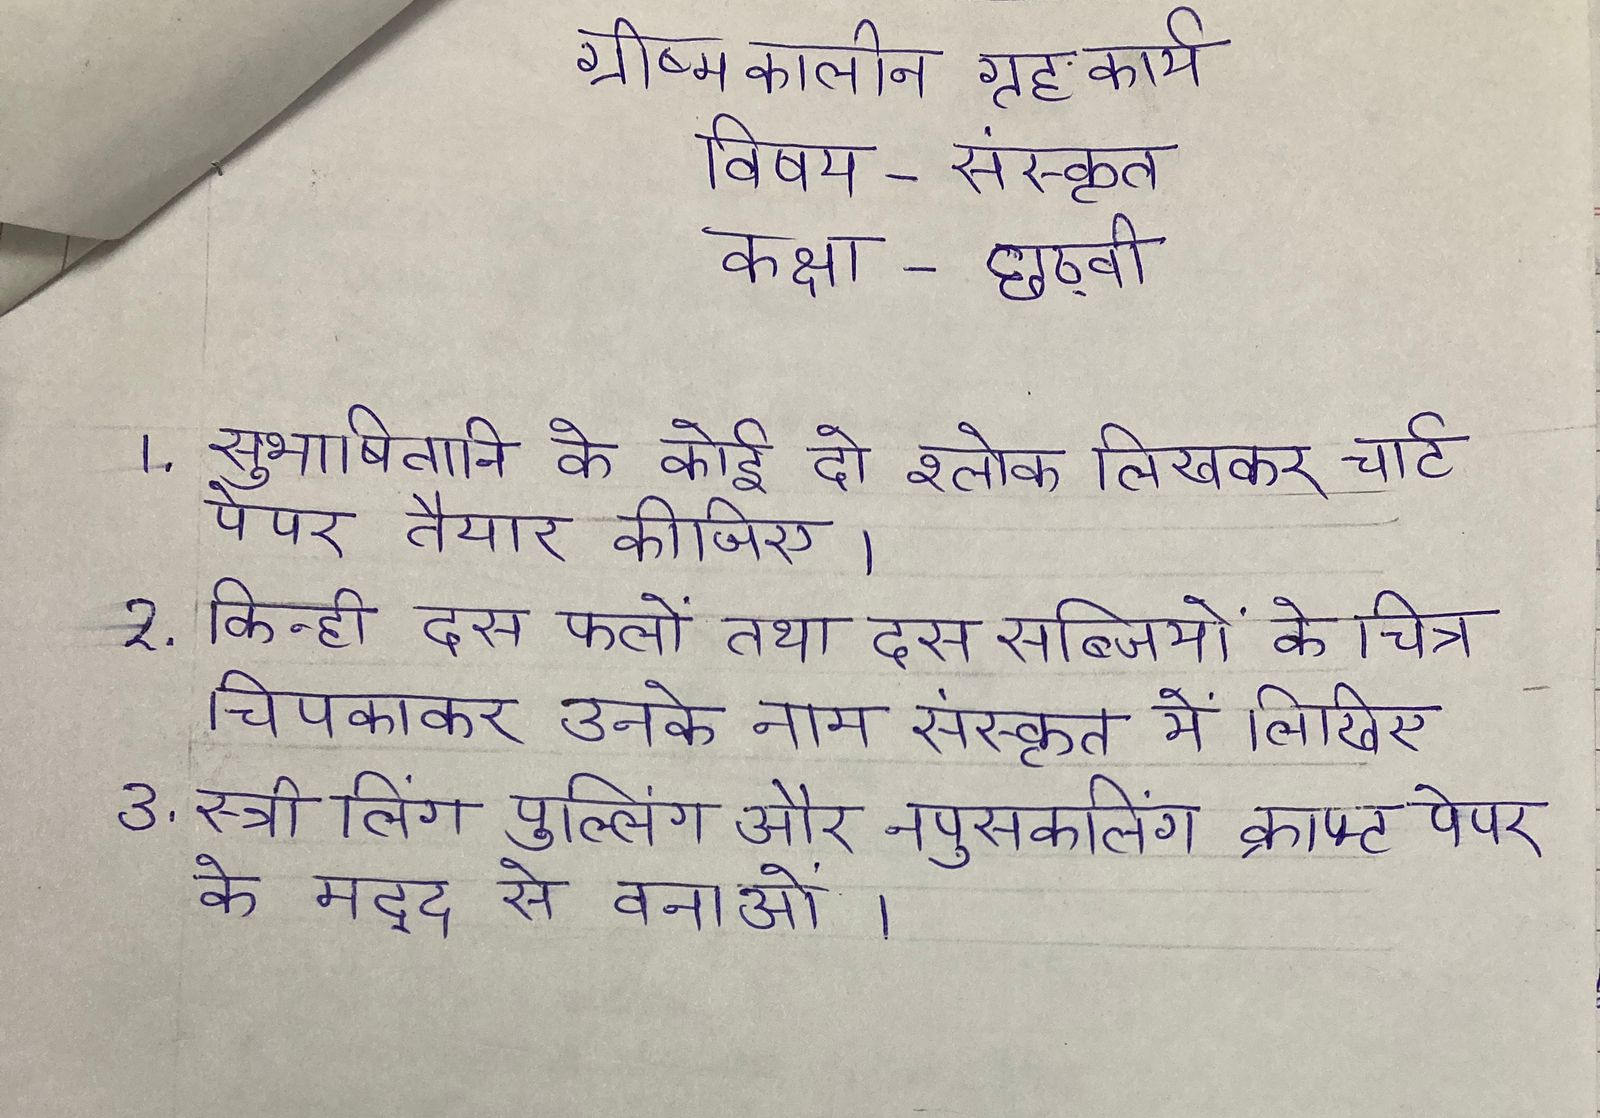 ग्रीष्मकालीन गृह कार्य
विषय - संस्कृत
कक्षा - छठ्वी
1. सुभाषितानि के कोई दो श्लोक लिखकर चार्ट
पेपर तैयार कीजिए ।
2. किन्ही दस फलों तथा दस सब्जियों के चित्र
चिपकाकर उनके नाम संस्कृत में लिखिए
3. स्त्री लिंग पुल्लिंग और नपुसकलिंग क्राफ्ट पेपर
के मद्द से वनाओं ।